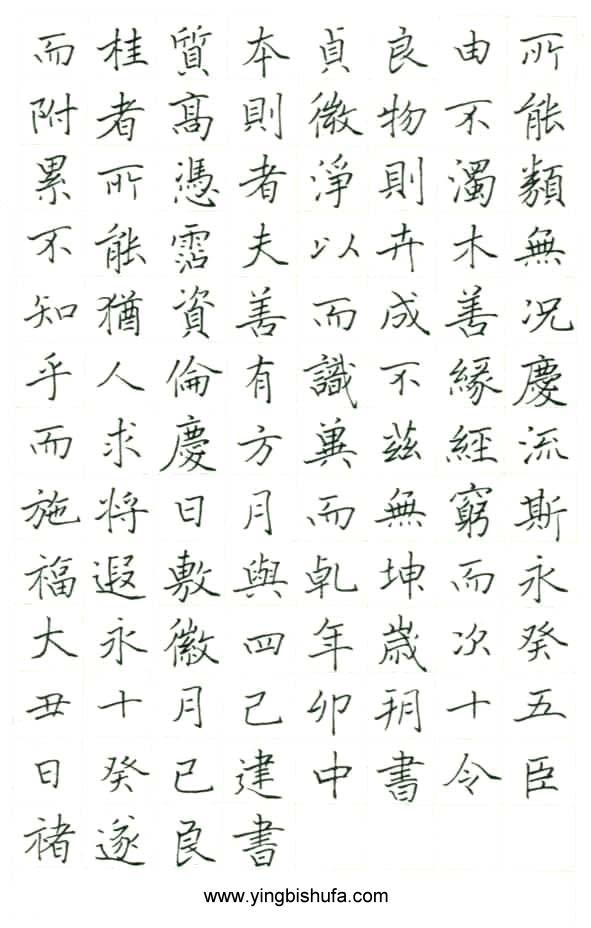 而桂質本貞良由所
附者髙則微物不能
累所憑者淨則濁類
不能霑夫以卉木無
知猶資善而成善况
乎人倫有識不緣慶
而求慶方冀茲經流
施將日月而無窮斯
福遐敷與乾坤而永
大永徽四年歲次癸
丑十月己卯朔十五
日癸巳建中書令臣
褚遂良書
www.yingbishufa.com